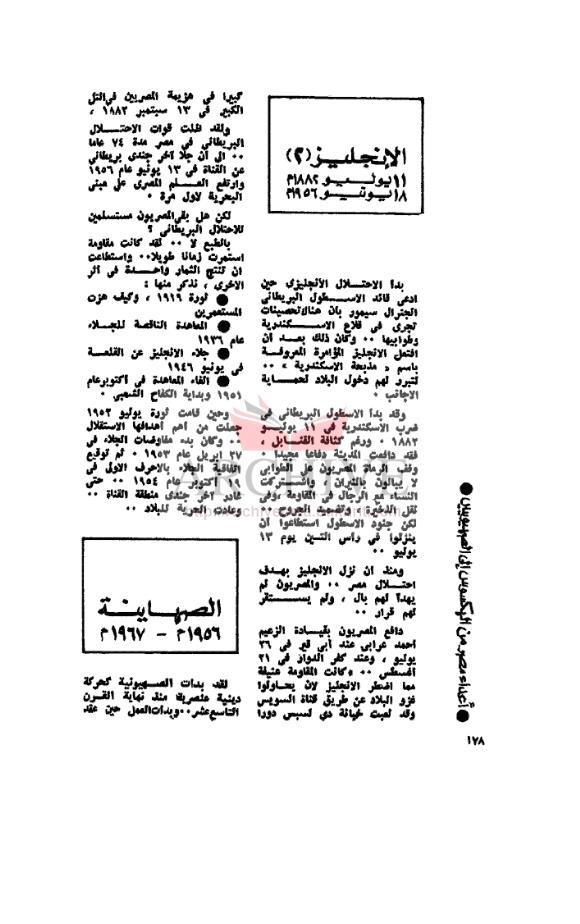 الإنجليز (٢)
١١ يوليو ١٨٨٢م
١٨ يونيو ١٩٥٦م
بدأ الاحتلال الانجليزي حين
ادعى قائد الاسطول البريطاني
الجنرال سيمور بان هناك تحصينات
تجرى في قلاع الاسكندرية
وطوابيها ٠٠ وكان ذلك بعد أن
افتعل الانجليز المؤامرة المعروفة
باسم « مذبحة الاسكندرية » ٠٠
لتبرر لهم دخول البلاد لحماية
الاجانب ٠
وقد بدأ الاسطول البريطاني في
ضرب الاسكندرية في ١١ يوليو
١٨٨٢ ٠ ورغم كثافة القنابل ،
فقد دافعت المدينة دفاعا مجيدا ٠
وقف الرماة المصريون على الطوابي
لا يبالون بالنيران ، واشتركت
النساء مع الرجال في المقاومة ، وفي
نقل الذخيرة ، وتضميد الجروح ٠٠
لكن جنود الاسطول استطاعوا أن
ينزلوا في راس التين يوم ١٣
يوليو ٠٠
ومنذ ان نزل الانجليز بهدف
احتلال مصر ٠٠ والمصريون لم
يهدأ لهم بال ، ولم يستقر
لهم قرار ٠٠
دافع المصريون بقيادة الزعيم
أحمد عرابي عند أبي قير في ٢٦
يوليو ، وعند كفر الدوار في ٢١
أغسطس ٠٠ وكانت المقاومة عنيفة
مما اضطر الانجليز لان يحاولوا
غزو البلاد عن طريق قناة السويس
وقد لعبت خيانة دي لسبس دورا
كبيرا في هزيمة المصريين في التل
الكبير في ١٣ سبتمبر ١٨٨٢ ،
ولقد ظلت قوات الاحتلال
البريطاني في مصر مدة ٧٤ عاما
٠٠ الى أن جلا آخر جندى بريطاني
عن القناة في ١٣ يونيو عام ١٩٥٦
وارتفع العلم المصرى على مبنى
البحرية لاول مرة ٠
لكن هل بقى المصريون مستسلمين
للاحتلال البريطاني ؟
بالطبع لا ٠٠ لقد كانت مقاومة
استمرت زمانا طويلا ٠٠ واستطاعت
ان تنتج الثمار واحدة في اثر
الاخرى ، نذكر منها :
● ثورة ١٩١٩ ، وكيف هزت
المستعمرين
● المعاهدة الناقصة للجلاء
عام ١٩٣٦
● جلاء الانجليز عن القلعة
في يونيو ١٩٤٦
● الغاء المعاهدة في أكتوبر عام
١٩٥١ وبداية الكفاح الشعبي ٠
وحين قامت ثورة يوليو ١٩٥٢
جعلت من أهم أهدافها الاستقلال
٠٠ وكان بدء مفاوضات الجلاء في
٢٧ ابريل عام ١٩٥٣ ٠ ثم توقيع
اتفاقية الجلاء بالاحرف الاولى في
أكتوبر عام ١٩٥٤ ٠٠ حتى
غادر آخر جندى منطقة القناة ٠٠
وعادت الحرية للبلاد ٠٠
الصهاينة
١٩٥٦م – ١٩٦٧م
لقد بدأت الصهيونية كحركة
دينية عنصرية منذ نهاية القرن
التاسع عشر ٠٠ وبدأت العمل حين عقد
● أعداء مصر من الهكسوس إلى الصهيونيين ●
١٧٨
ARCHIVE